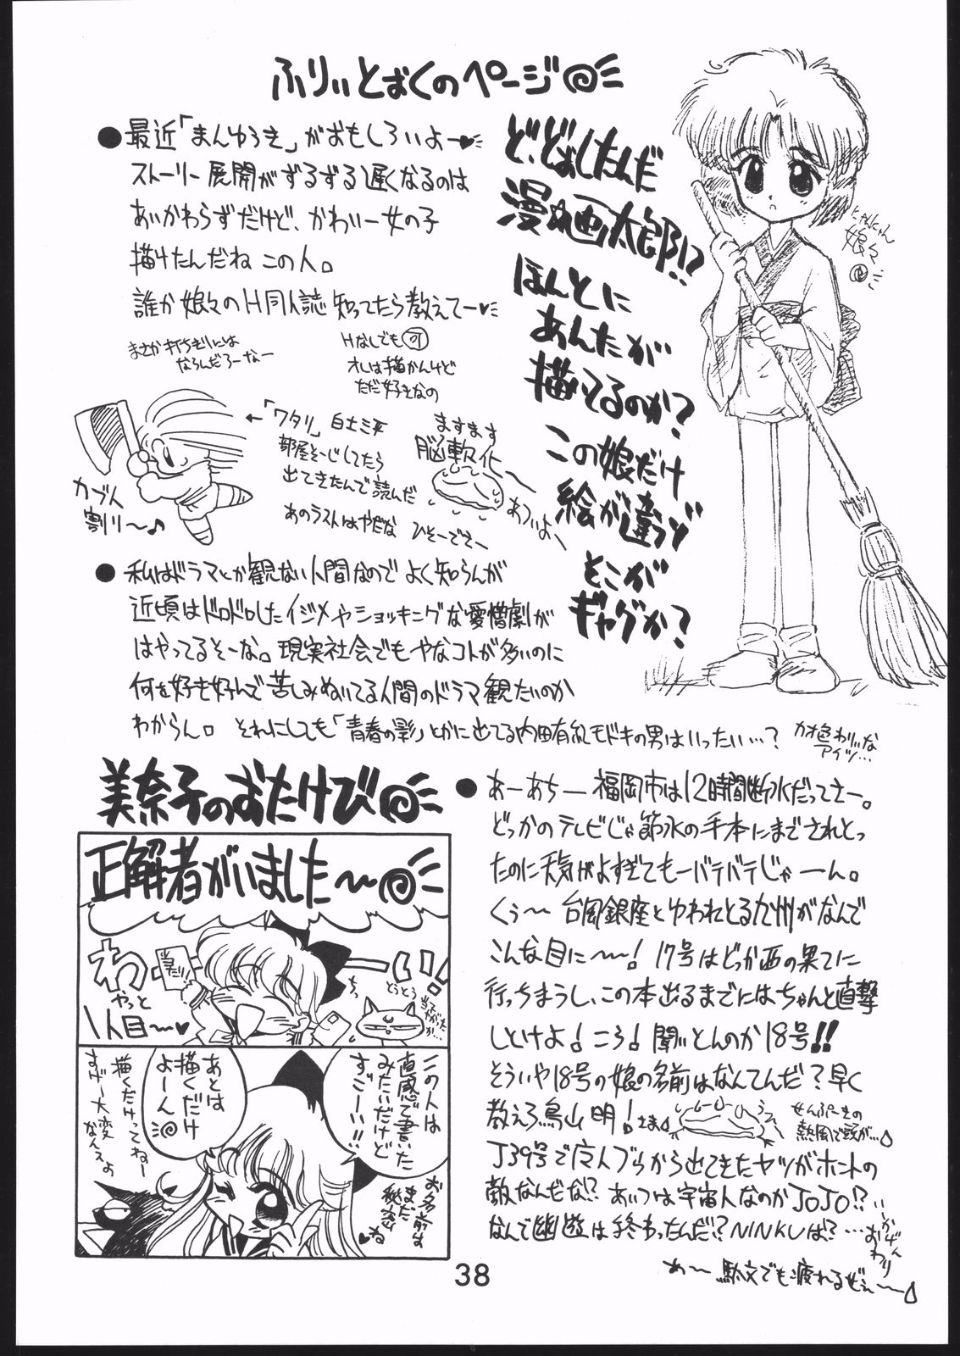 ふりぃとぉくのページ
●最近「まんゆうき」がおもしろいよー♥
ストーリー展開がずるずる遅くなるのは
あいかわらずだけど、かわいー女の子
描けたんだね この人。
誰か娘々のH同人誌知ってたら教えてー♥
まさか打ちぎりには
ならんだろーなー
Hなしでも可
オレは描かんけど
ただ好きなの
ど、どぉしたんだ
漫☆画太郎!?
ほんとに
あんたが
描いてるのか?
この娘だけ
絵が違うぞ
そこが
ギャグか?
娘々
←「ワタリ」白土三平
部屋そーじしてたら
出てきたんで読んだ
あのラストはやだな ひそーでさー
カブト
割り〜♪
ますます
脳軟化〜
あついよ〜
●私はドラマとか観ない人間なのでよく知らんが
近頃はドロドロしたイジメやショッキングな愛憎劇が
はやってるそーな。現実社会でもやなコトが多いのに
何を好き好んで苦しみぬいてる人間のドラマ観たいのか
わからん。それにしても「青春の影」とかに出てる内田有紀モドキの男はいったい…?
カオ色わりぃな
アイツ…
美奈子のおたけび
正解者がいました〜
わーーーい!
当たり
やっと
1人目〜♥
とうとう
この人は
直感で書いた
みたいだけど
すごーい!!
あとは
描くだけ
よーん
描くだけってねー
すげー大変
なんスよ
お名前は
まだ
秘密
ね♥
●あーあちー 福岡市は12時間断水だってさー。
どっかのテレビじゃ節水の手本にまでされとっ
たのに天気がよすぎてもーバテバテじゃーん。
くぅ〜 台風銀座とゆわれとる九州がなんで
こんな目に〜〜! 17号はどっか西の果てに
行っちまうし、この本出るまでにはちゃんと直撃
しとけよ! こら! 聞いとんのか18号!!
そういや18号の娘の名前はなんてんだ?早く
教えろ鳥山明!さま
せんぷーきの
熱風で蚊が…
J39号で魔人ブゥから出てきたヤツがホントの
敵なんだな!? あいつは宇宙人なのかJOJO!?
なんで幽遊は終わったんだ!? NINKUは?…
かぜん
おわり
あ〜 駄文でも疲れるぜぇ〜
38